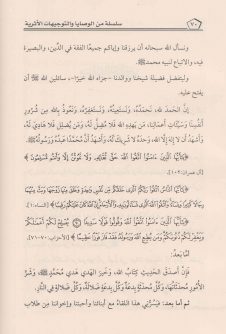 ٧٠ سلسلة من الوصايا والتوجيهات الأثرية
ونسأل الله سبحانه أن يرزقنا وإياكم جميعًا الفقه في الدِّين، والبصيرة
فيه، والاتباع لنبيه محمد ﷺ.
وليتفضل فضيلة شيخنا ووالدنا - جزاه الله خيرًا -، سائلين الله أن
يفتح عليه.
إنَّ الحمد لله، نَحمَدُه، ونَستعِينُه، ونَستَغْفِرُه، ونَعوذُ بالله مِن شُرُورِ
أنفُسِنَا وسَيِّئَاتِ أعمَالِنا، مَن يهدِهِ الله فَلا مُضِلَّ لَهُ، ومَن يُضْلِل فلا هادِيَ لَه،
وأشهدُ أن لا إلهَ إلَّا الله، وحدَه لا شريكَ لَه، وأشهدُ أنَّ مُحمَّدًا عَبدُه ورَسولُه ﷺ.
﴿يَا أَيُّهَا الَّذِينَ آمَنُوا اتَّقُوا اللَّهَ حَقَّ تُقَاتِهِ وَلَا تَمُوتُنَّ إِلَّا وَأَنتُم مُّسْلِمُونَ﴾
[آل عمران: ١٠٢].
﴿يَا أَيُّهَا النَّاسُ اتَّقُوا رَبَّكُمُ الَّذِي خَلَقَكُم مِّن نَّفْسٍ وَاحِدَةٍ وَخَلَقَ مِنْهَا زَوْجَهَا وَبَثَّ مِنْهُمَا
رِجَالًا كَثِيرًا وَنِسَاءً وَاتَّقُوا اللَّهَ الَّذِي تَسَاءَلُونَ بِهِ وَالْأَرْحَامَ إِنَّ اللَّهَ كَانَ عَلَيْكُمْ رَقِيبًا﴾ [النساء: ١].
﴿يَا أَيُّهَا الَّذِينَ آمَنُوا اتَّقُوا اللَّهَ وَقُولُوا قَوْلًا سَدِيدًا ۝ يُصْلِحْ لَكُمْ أَعْمَالَكُمْ
وَيَغْفِرْ لَكُمْ ذُنُوبَكُمْ وَمَن يُطِعِ اللَّهَ وَرَسُولَهُ فَقَدْ فَازَ فَوْزًا عَظِيمًا﴾ [الأحزاب: ٧٠-٧١].
أمَّا بعدُ:
فإنَّ أصدقَ الحديثِ كِتابُ الله، وخيرَ الهَديِ هَديُ مُحمَّدٍ ﷺ، وشَرَّ
الأُمورِ مُحدَثَاتُها، وكُلَّ مُحدَثةٍ بِدعَةٌ وكُلَّ بِدعَةٍ ضَلالة، وكُلَّ ضَلالةٍ في النار.
ثم أما بعد: فيسُرُّني هذا اللقاءُ مع أبنائنا وأحبتنا وإخواننا من طلاب